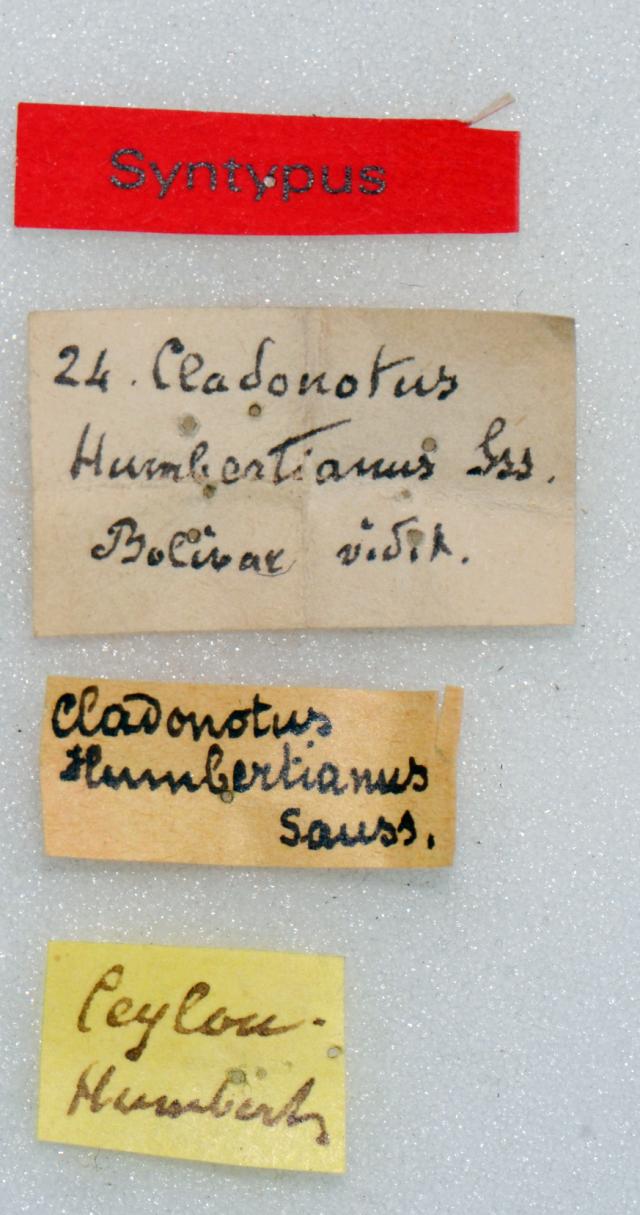 Syntypus
24. Cladonotus
Humbertianus Sss.
Bolivar vidit.
Cladonotus
Humbertianus
Sauss.
Ceylon.
Humbert